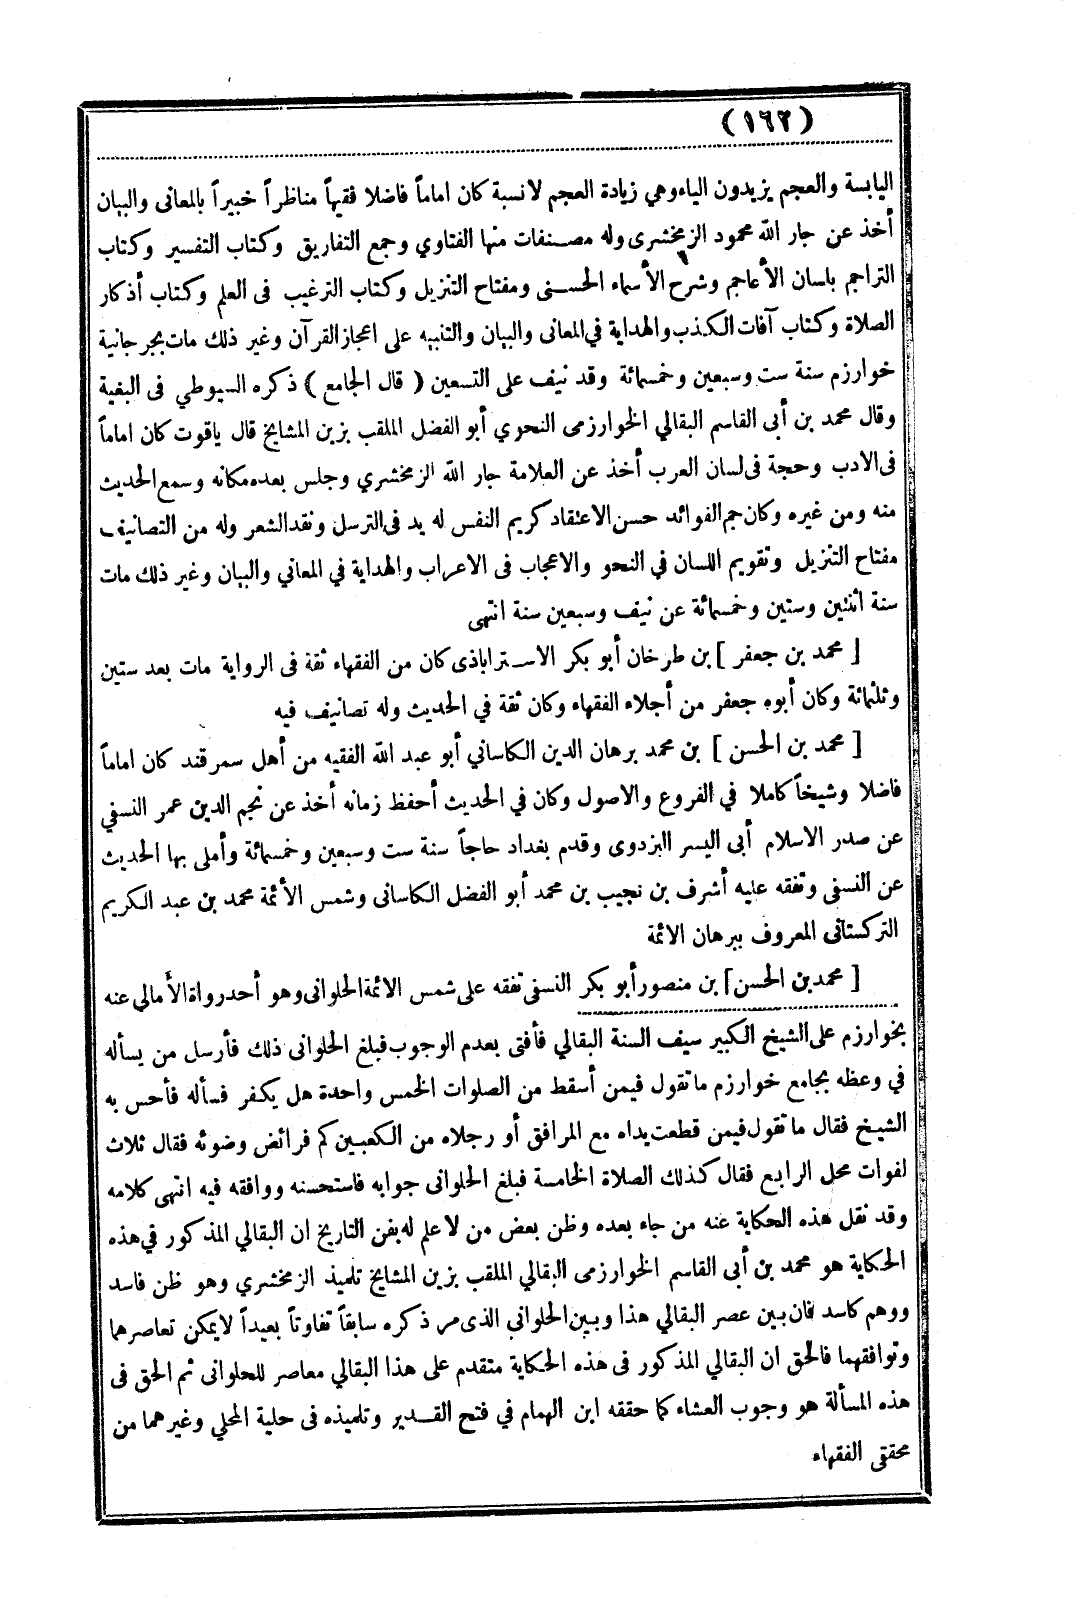 (١٦٢)
اليابسة والعجم يزيدون الياء وهي زيادة العجم لا نسبة كان اماماً فاضلا فقيهاً مناظراً خبيراً بالمعانى والبيان
أخذ عن جار الله محمود الزمخشرى وله مصنفات منها الفتاوي وجمع التفاريق وكتاب التفسير وكتاب
التراجم بلسان الأعاجم وشرح الأسماء الحسنى ومفتاح التنزيل وكتاب الترغيب فى العلم وكتاب أذكار
الصلاة وكتاب آفات الكذب والهداية في المعانى والبيان والتنبيه على اعجاز القرآن وغير ذلك مات بجرجانية
خوارزم سنة ست وسبعين وخمسمائة وقد نيف على التسعين ( قال الجامع ) ذكره السيوطي فى البغية
وقال محمد بن أبى القاسم البقالي الخوارزمى النحوي أبو الفضل الملقب بزين المشايخ قال ياقوت كان اماماً
فى الادب وحجة فى لسان العرب أخذ عن العلامة جار الله الزمخشري وجلس بعده مكانه وسمع الحديث
منه ومن غيره وكان جم الفوائد حسن الاعتقاد كريم النفس له يد فى الترسل ونقد الشعر وله من التصانيف
مفتاح التنزيل وتقويم اللسان في النحو والاعجاب فى الاعراب والهداية في المعاني والبيان وغير ذلك مات
سنة اثنتين وستين وخمسمائة عن نيف وسبعين سنة انتهى
[ محمد بن جعفر ] بن طرخان أبو بكر الاستراباذى كان من الفقهاء ثقة فى الرواية مات بعد ستين
وثلثمائة وكان أبوه جعفر من أجلاء الفقهاء وكان ثقة في الحديث وله تصانيف فيه
[ محمد بن الحسن ] بن محمد برهان الدين الكاساني أبو عبد الله الفقيه من أهل سمرقند كان اماماً
فاضلا وشيخاً كاملا في الفروع والاصول وكان في الحديث أحفظ زمانه أخذ عن نجم الدين عمر النسفي
عن صدر الاسلام أبى اليسر البزدوى وقدم بغداد حاجاً سنة ست وسبعين وخمسمائة وأملى بها الحديث
عن النسفى وتفقه عليه أشرف بن نجيب بن محمد أبو الفضل الكاسانى وشمس الأئمة محمد بن عبد الكريم
التركستانى المعروف ببرهان الائمة
[ محمد بن الحسن ] بن منصور أبو بكر النسفى تفقه على شمس الائمة الحلوانى وهو أحد رواة الأمالي عنه
بخوارزم على الشيخ الكبير سيف السنة البقالي فأفتى بعدم الوجوب فبلغ الحلوانى ذلك فأرسل من يسأله
في وعظه بجامع خوارزم ما تقول فيمن أسقط من الصلوات الخمس واحدة هل يكفر فسأله فأحس به
الشيخ فقال ما تقول فيمن قطعت يداه مع المرافق أو رجلاه من الكعبين كم فرائض وضوئه فقال ثلاث
لفوات محل الرابع فقال كذلك الصلاة الخامسة فبلغ الحلوانى جوابه فاستحسنه ووافقه فيه انتهى كلامه
وقد نقل هذه الحكاية عنه من جاء بعده وظن بعض من لا علم له بفن التاريخ ان البقالي المذكور في هذه
الحكاية هو محمد بن أبى القاسم الخوارزمى البقالي الملقب بزين المشايخ تلميذ الزمخشري وهو ظن فاسد
ووهم كاسد فان بين عصر البقالي هذا وبين الحلواني الذى مر ذكره سابقاً تفاوتاً بعيداً لا يمكن تعاصرهما
وتوافقهما فالحق ان البقالي المذكور فى هذه الحكاية متقدم على هذا البقالي معاصر للحلوانى ثم الحق فى
هذه المسألة هو وجوب العشاء كما حققه ابن الهمام في فتح القدير وتلميذه فى حلية المحلي وغيرهما من
محققى الفقهاء